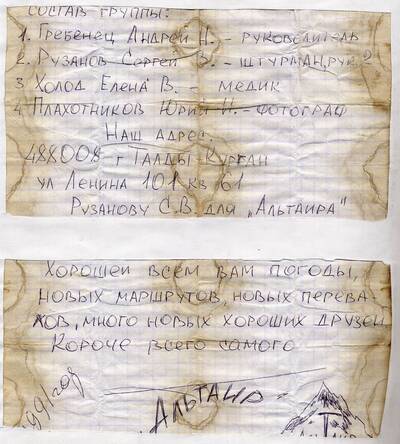 СОСТАВ ГРУППЫ:
1. Гребенец Андрей Н. - руководитель
2. Рузанов Сергей В. - штурман, рук 2
3 Холод Елена В. - медик
4 Плахотников Юрий Н. - фотограф
Наш адрес:
488008 г Талды-Курган
ул Ленина 101 кв 61
Рузанову С.В. для „Альтаира"
Хорошей всем вам погоды,
новых маршрутов, новых перева-
лов, много новых хороших друзей
Короче всего самого
991год
Альтаир